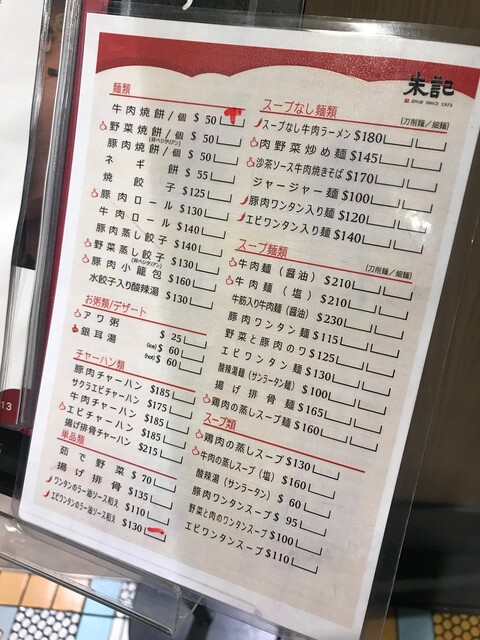 朱記
ZHUJI SINCE 1973
麺類
牛肉焼餅/個 $ 50
野菜焼餅/個 $ 50
(卵ベジタリアン)
豚肉焼餅/個 $ 50
ネギ餅 $ 55
焼餃子 $125
豚肉ロール $130
牛肉ロール $140
豚肉蒸し餃子 $140
野菜蒸し餃子 $130
(卵ベジタリアン)
豚肉小龍包 $160
水餃子入り酸辣湯 $130
お粥類/デザート
アワ粥 $ 25
銀耳湯 (ice) $ 60
(hot) $ 60
チャーハン類
豚肉チャーハン $185
サクラエビチャーハン $175
牛肉チャーハン $185
エビチャーハン $185
揚げ排骨チャーハン $215
単品類
茹で野菜 $ 70
揚げ排骨 $135
ワンタンのラー油ソース和え $110
エビワンタンのラー油ソース和え $130
スープなし麺類 (刀削麺/細麺)
スープなし牛肉ラーメン $180
肉野菜炒め麺 $145
沙茶ソース牛肉焼きそば $170
ジャージャー麺 $100
豚肉ワンタン入り麺 $120
エビワンタン入り麺 $140
スープ麺類 (刀削麺/細麺)
牛肉麺(醤油) $210
牛肉麺(塩) $210
牛筋入り牛肉麺(醤油) $230
豚肉ワンタン麺 $115
野菜と豚肉のワ $125
エビワンタン麺 $130
酸辣湯麺(サンラータン麺) $100
揚げ排骨麺 $165
鶏肉の蒸しスープ麺 $160
スープ類
鶏肉の蒸しスープ $130
牛肉の蒸しスープ(塩) $160
酸辣湯(サンラータン) $ 60
豚肉ワンタンスープ $ 95
野菜と肉のワンタンスープ $100
エビワンタンスープ $110
13